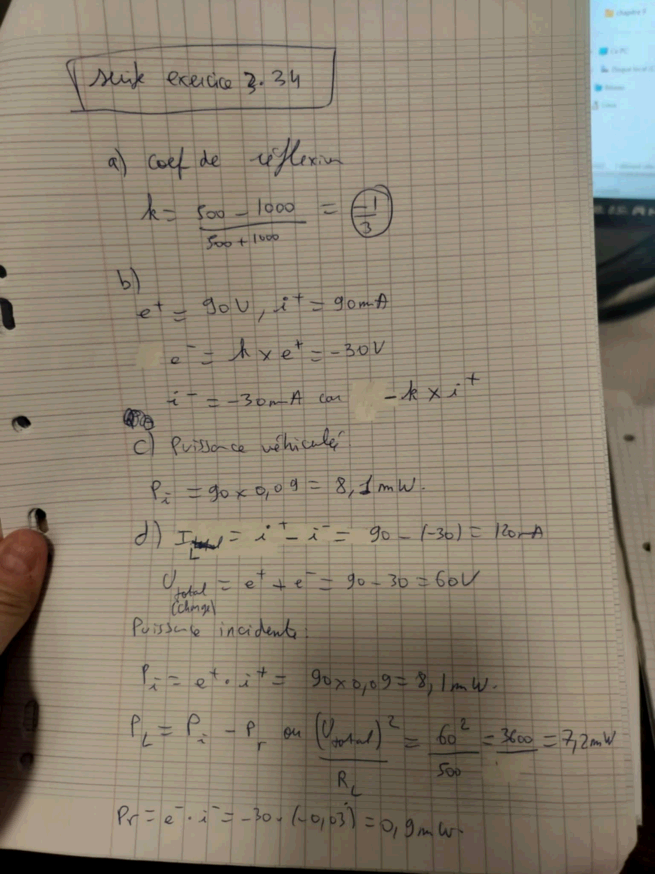 suite exercice 3.34
a) coef de réflexion
k = 500 - 1000 / 500 + 1000 = -1/3
b)
e⁺ = 90V, i⁺ = 90mA
e⁻ = k x e⁺ = -30V
i⁻ = -30mA car -k x i⁺
c) Puissance véhiculé
Pi = 90 x 0,09 = 8,1mW.
d) I_L = i⁺ - i⁻ = 90 - (-30) = 120mA
U total (charge) = e⁺ + e⁻ = 90 - 30 = 60V
Puissance incidente:
Pi = e⁺ · i⁺ = 90x0,09 = 8,1mW.
P_L = Pi - Pr ou (U total)² / R_L = 60² / 500 = 3600 = 7,2mW
Pr = e⁻ · i⁻ = -30 · (-0,03) = 0,9mW.